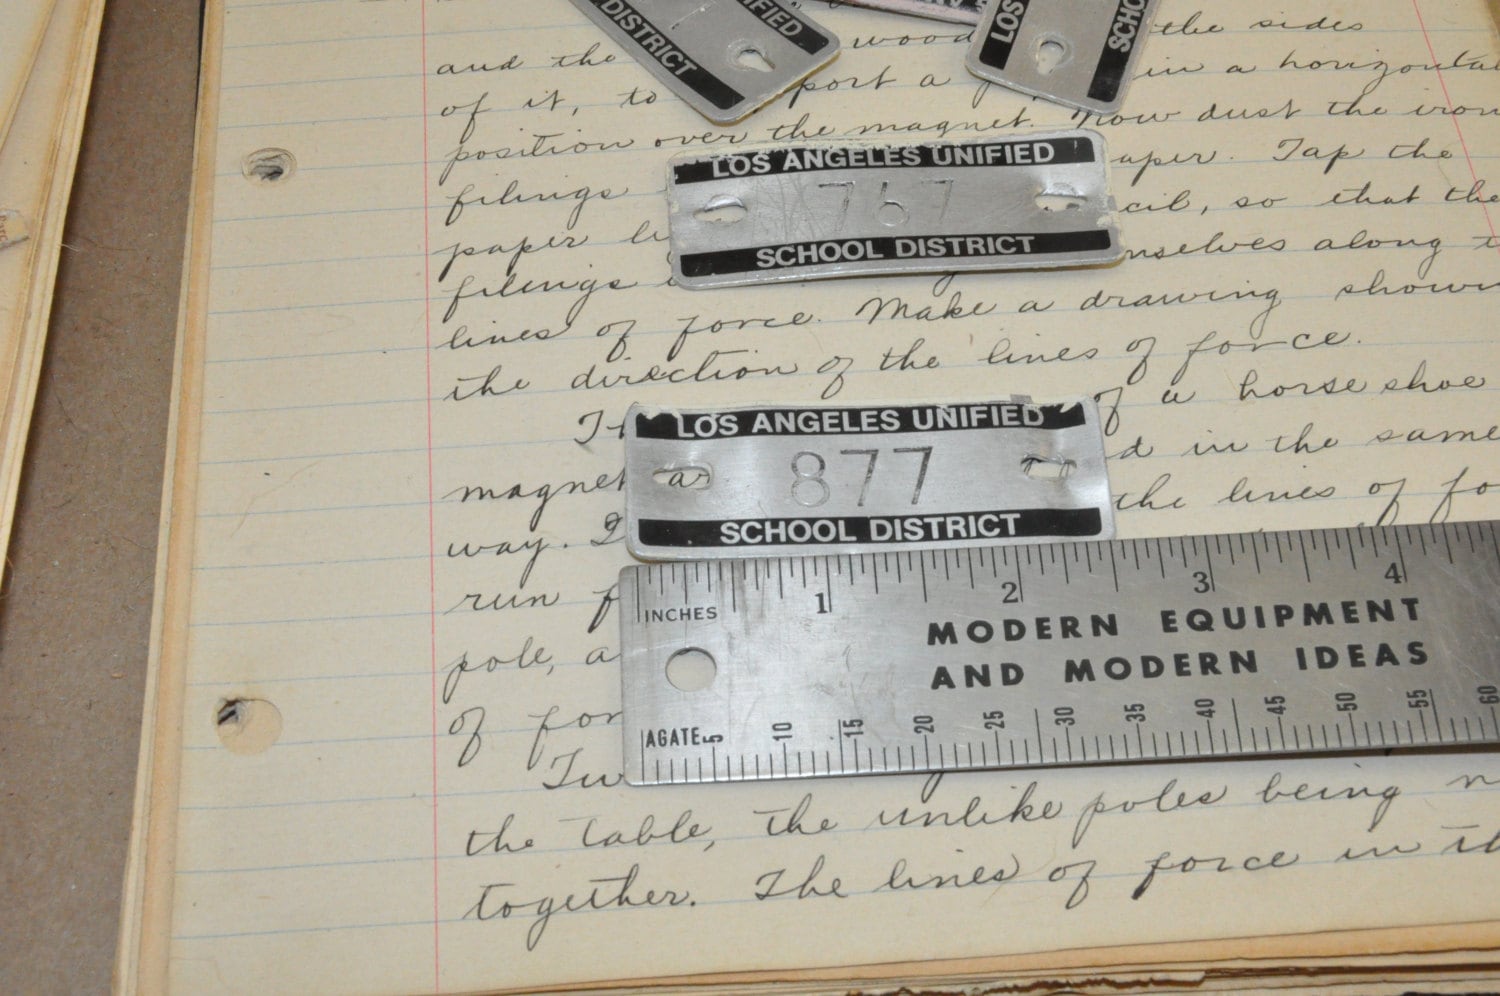 DISTRICT
UNIFIED
LOS
SCHO
and the wood the sides
of it, to port a in a horizontal
position over the magnet. Now dust the iron
LOS ANGELES UNIFIED
767
SCHOOL DISTRICT
filings aper. Tap the
paper cil, so that the
filings mselves along
lines of force. Make a drawing
the direction of the lines of force.
of a horse shoe
LOS ANGELES UNIFIED
877
SCHOOL DISTRICT
magnet ar d in the same
way. the lines of fo
run
pole, a
of for
INCHES 1 2 3 4
MODERN EQUIPMENT
AND MODERN IDEAS
AGATE 5 10 15 20 25 30 35 40 45 50 55 60
the table, the unlike poles being
together. The lines of force in